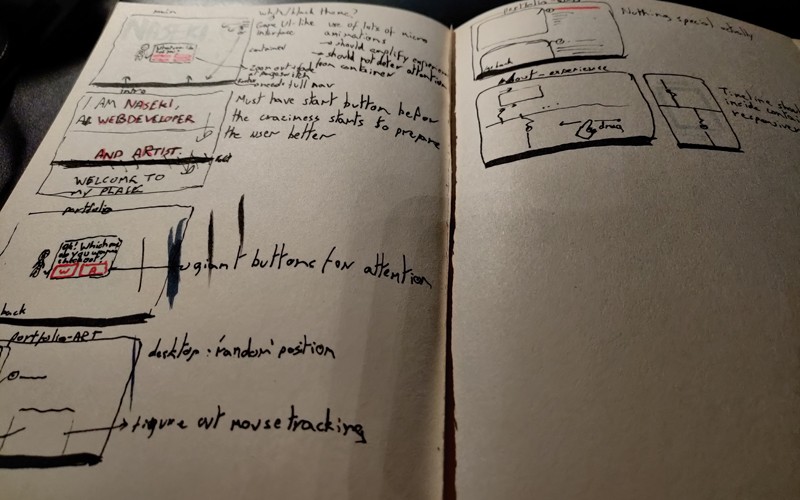 main
white/black theme?
NASEKI
Game UI-like
interface
use of lots of micro
animations
→ should amplify experience
→ should not deter attention
from container
container
needs full nav
intro
I AM NASEKI,
A WEBDEVELOPER
AND ARTIST.
Must have start button before
the craziness starts to prepare
the user better
WELCOME TO
MY PLACE
portfolio
Oh! Which one
do you
W A
giant buttons for attention
back
portfolio-ART
desktop: 'random' position
figure out mouse tracking
Nothing special really
back
About-experience
drag
Timeline should
inside
responsive